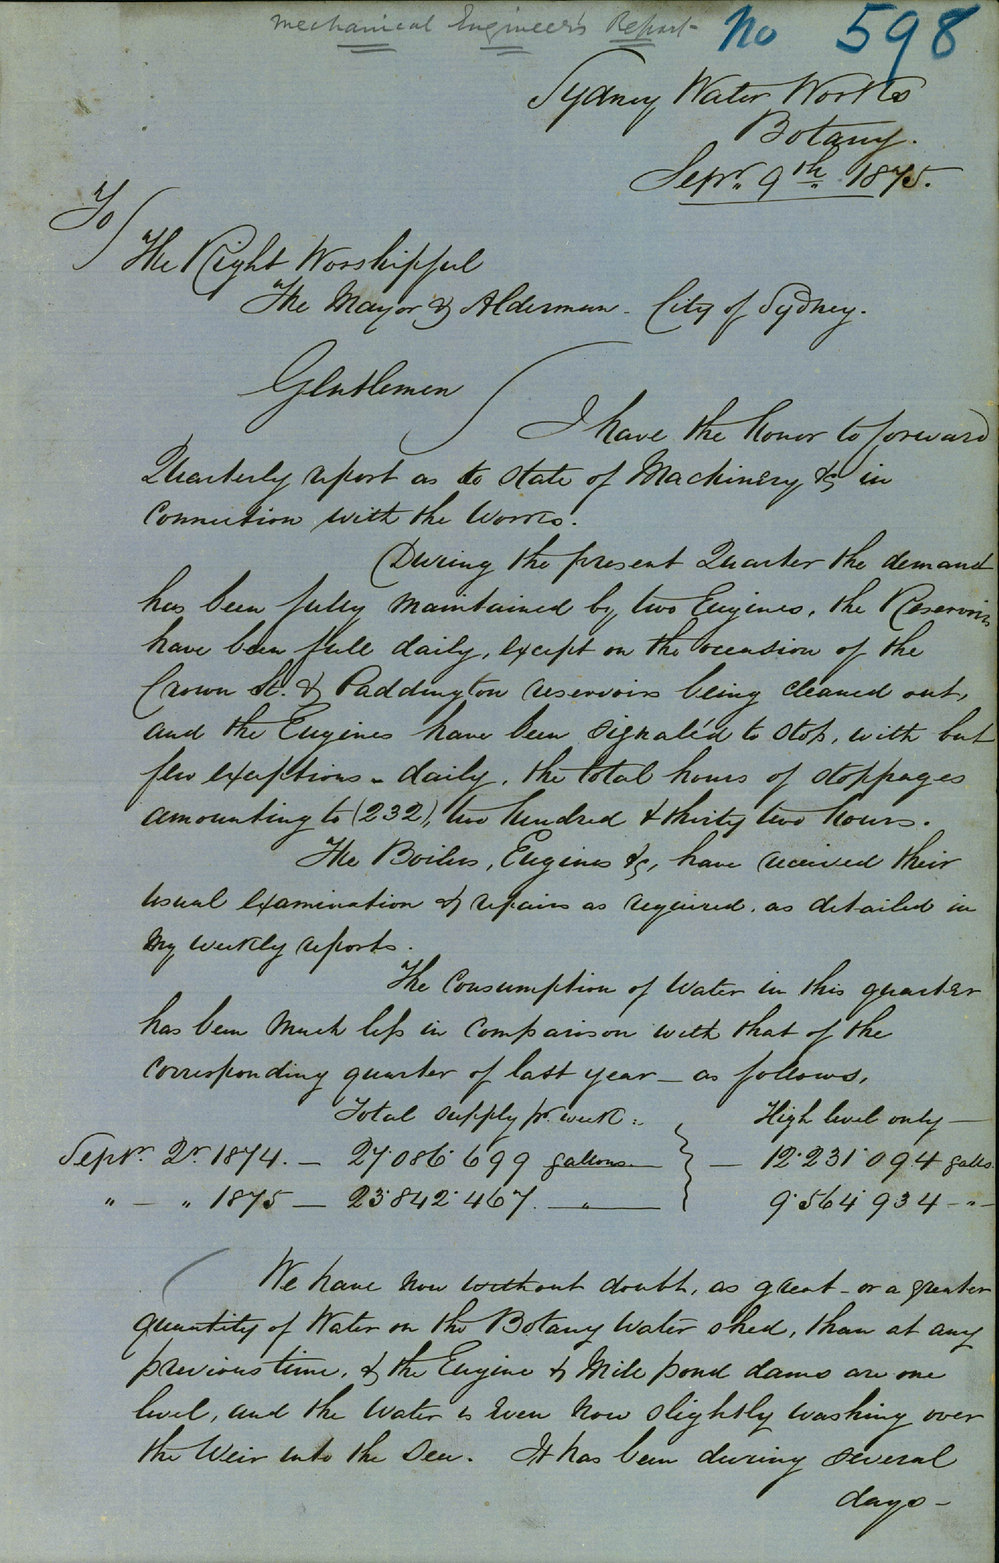 Mechanical Engineer's Report
No 598
Sydney Water Works
Botany.
Sepr. 9th. 1875.
To
The Right Worshipful
The Mayor & Alderman. City of Sydney.
Gentlemen
I have the honor to forward
Quarterly report as to state of Machinery &c in
connection with the Works.
During the present Quarter the demand
has been fully maintained by two Engines, the Reservoirs
have been full daily, except on the occasion of the
Crown St. & Paddington reservoirs being cleaned out,
and the Engines have been signal'd to stop, with but
few exceptions - daily, the total hours of stoppages
amounting to (232), two hundred & thirty two hours.
The Boilers, Engines &c, have received their
usual examination & repairs as required, as detailed in
my weekly reports.
The Consumption of Water in this quarter
has been much less in comparison with that of the
corresponding quarter of last year - as follows,
Total supply pr. week. High level only -
Septr. 2r. 1874. - 27.086.699 gallons. - 12.231.094 galls.
" - " 1875 - 23.842.467. - " - 9.564.934 - " -
We have now without doubt, as great - or a greater
quantity of Water on the Botany Water shed, than at any
previous time, & the Engine & Mill pond dams are one
level, and the Water is even now slightly washing over
the Weir into the Sea. It has been during several
days -